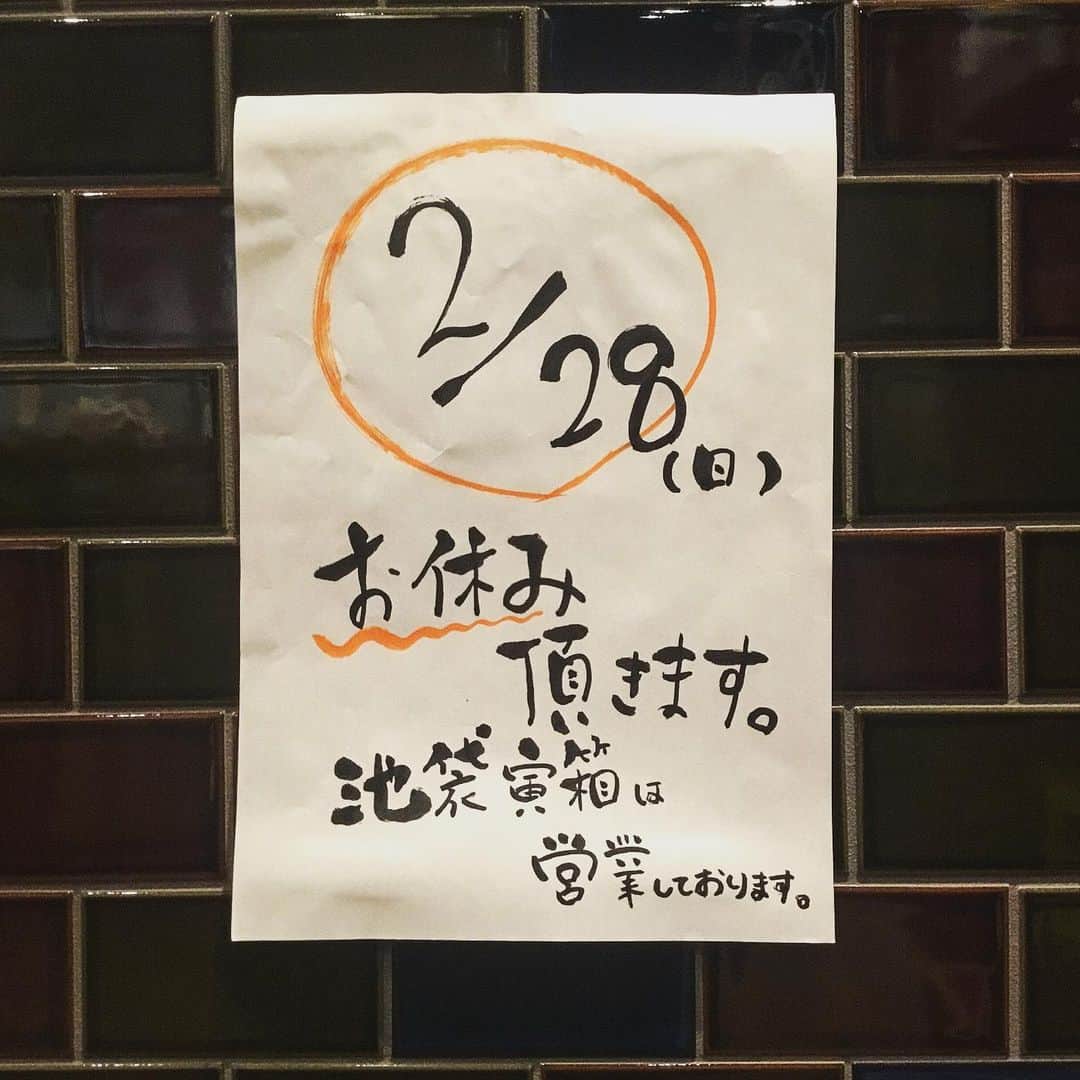 2/28(日)
お休み
頂きます。
池袋寅箱は
営業しております。